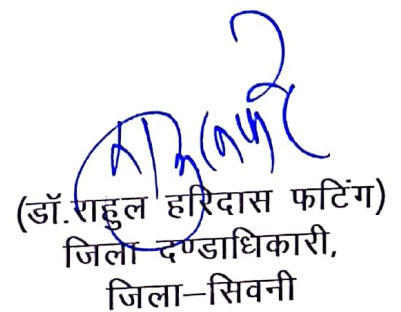 (डॉ.राहुल हरिदास फटिंग)
जिला दण्डाधिकारी,
जिला–सिवनी